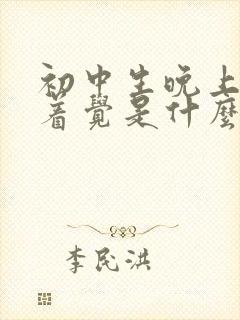 初中生晚上
着覺是什麼
李民洪